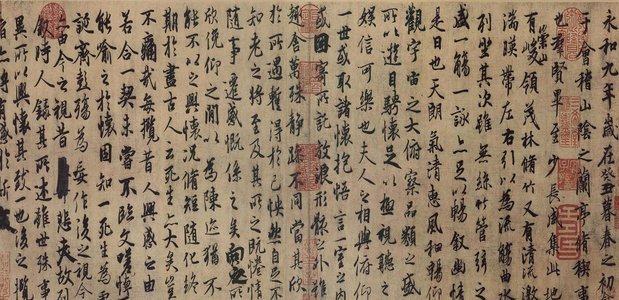 永和九年歲在癸丑暮春之初
于會稽山陰之蘭亭脩稧事
也羣賢畢至少長咸集此地
有崇山峻領茂林脩竹又有清流激
湍暎帶左右引以為流觴曲水
列坐其次雖無絲竹管弦之
盛一觴一詠亦足以暢敘幽情
是日也天朗氣清惠風和暢仰
觀宇宙之大俯察品類之盛
所以遊目騁懷足以極視聽之
娛信可樂也夫人之相與俯仰
一世或取諸懷抱悟言一室之內
或因寄所託放浪形骸之外雖
趣舍萬殊靜躁不同當其欣
於所遇蹔得於己怏然自足不
知老之將至及其所之既惓情
隨事遷感慨係之矣向之所
欣俛仰之閒以為陳迹猶不
能不以之興懷況脩短隨化終
期於盡古人云死生亦大矣豈
不痛哉每攬昔人興感之由
若合一契未嘗不臨文嗟悼
能喻之於懷固知一死生為虛
誕齊彭殤為妄作後之視今
亦由今之視昔悲夫故列
敘時人錄其所述雖世殊事
異所以興懷其致一也後之攬
者亦將有感於斯